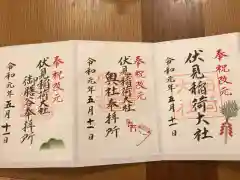 奉祝改元
伏見稲荷大社
令和元年五月十一日
奉祝改元
伏見稲荷大社
奥社奉拝所
令和元年五月十一日
奉祝改元
伏見稲荷大社
御膳谷奉拝所
令和元年五月十一日